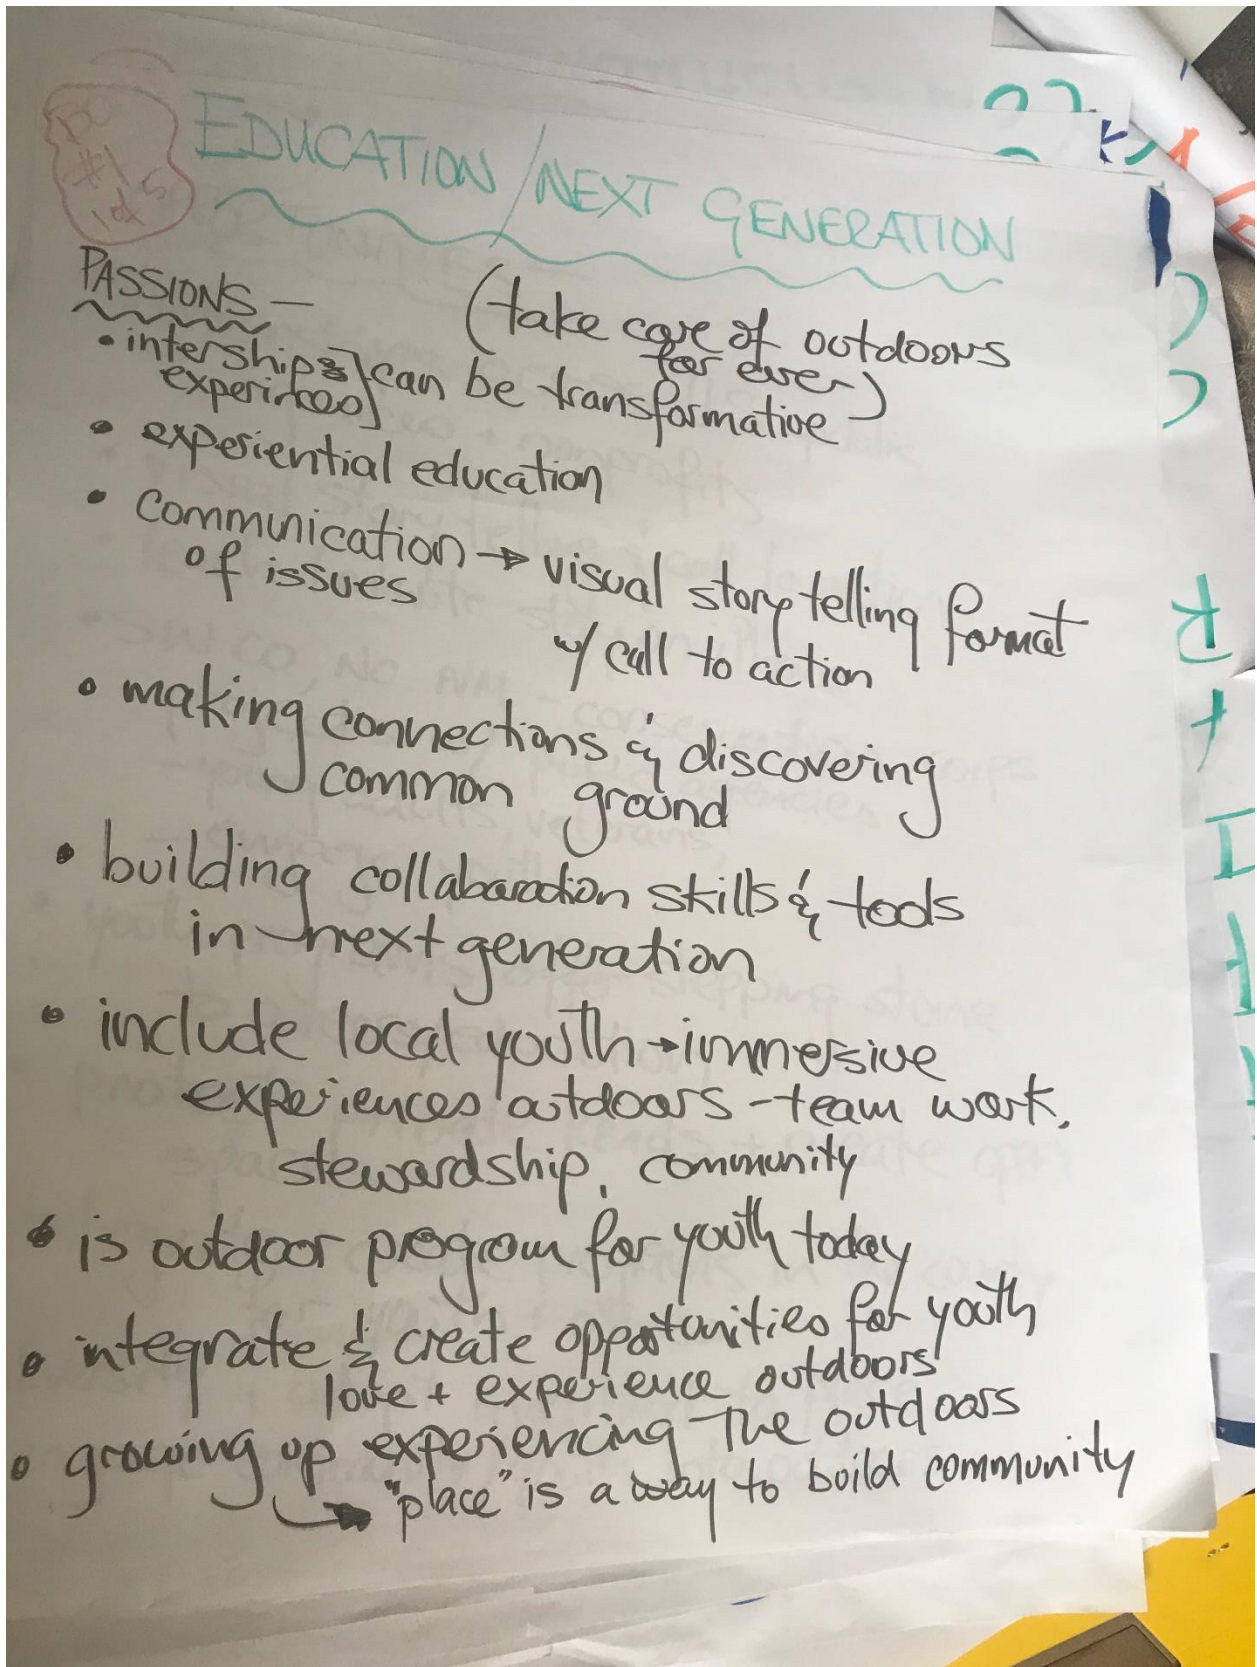 pg #1 of 5
EDUCATION / NEXT GENERATION
PASSIONS —
(take care of outdoors
for ever)
• interships &] can be transformative
experinces]
• experiential education
• communication → visual storytelling format
of issues
w/ call to action
• making connections & discovering
common ground
• building collabaration skills & tools
in next generation
• include local youth → immersive
experiences outdoors - team work,
stewardship, community
• is outdoor program for youth today
• integrate & create opportunities for youth
love + experience outdoors
• growing up experiencing the outdoors
→ "place" is a way to build community